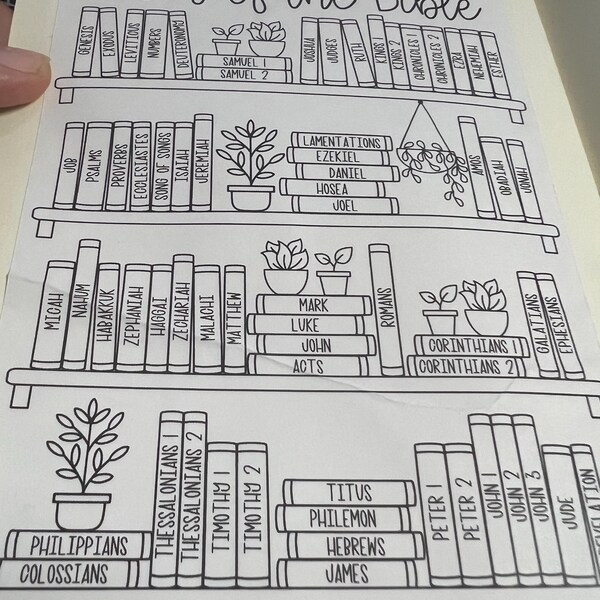 of the Bible
GENESIS
EXODUS
LEVITICUS
NUMBERS
DEUTERONOMY
SAMUEL 1
SAMUEL 2
JOSHUA
JUDGES
RUTH
KINGS 1
KINGS 2
CHRONICLES 1
CHRONICLES 2
EZRA
NEHEMIAH
ESTHER
JOB
PSALMS
PROVERBS
ECCLESIASTES
SONG OF SONGS
ISAIAH
JEREMIAH
LAMENTATIONS
EZEKIEL
DANIEL
HOSEA
JOEL
AMOS
OBADIAH
JONAH
MICAH
NAHUM
HABAKKUK
ZEPHANIAH
HAGGAI
ZECHARIAH
MALACHI
MATTHEW
MARK
LUKE
JOHN
ACTS
ROMANS
CORINTHIANS 1
CORINTHIANS 2
GALATIANS
EPHESIANS
PHILIPPIANS
COLOSSIANS
THESSALONIANS 1
THESSALONIANS 2
TIMOTHY 1
TIMOTHY 2
TITUS
PHILEMON
HEBREWS
JAMES
PETER 1
PETER 2
JOHN 1
JOHN 2
JOHN 3
JUDE
REVELATION